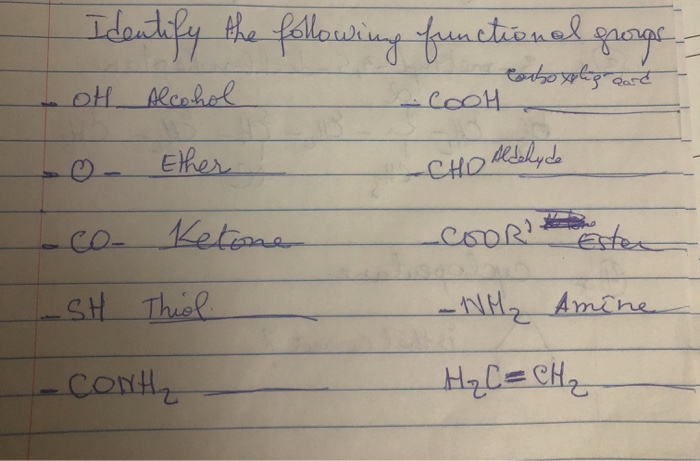 Identify the following functional groups
- OH Alcohol
- COOH carboxylic acid
- O - Ether
- CHO Aldehyde
- CO- Ketone
- COOR' Ester
- SH Thiol
- NH2 Amine
- CONH2
H2C=CH2